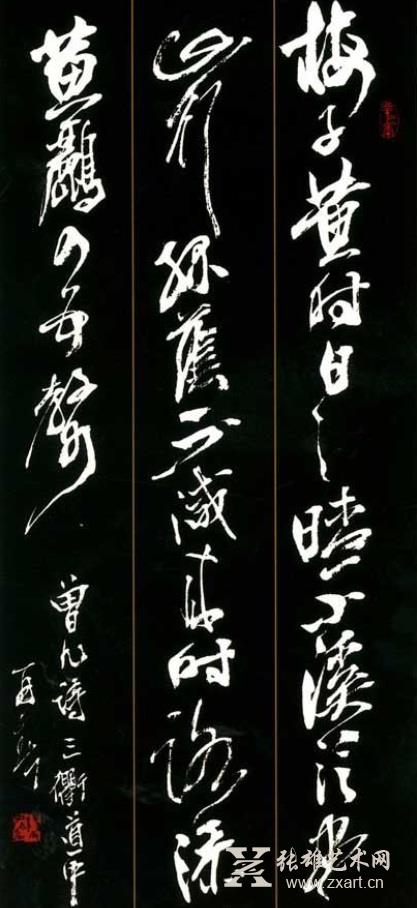 梅子黄时日々晴小溪泛尽
山行绿蔭不減来时路添
黄鸝四五聲
曾几诗三衢道中
张雄艺术网
www.zxart.cn